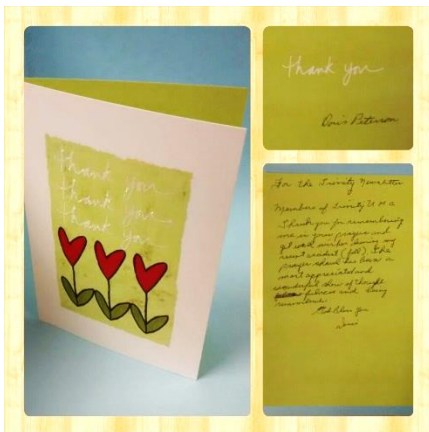 thank you
thank you
thank you
thank you
Doris Peterson
For the Trinity Newsletter
Members of Trinity U M C
Thank you for remembering
me in your prayers and
get well wishes during my
recent accident (fall). The
prayer shawl has been a
most appreciated and
wonderful show of thought
fulness and
God Bless you
Doris